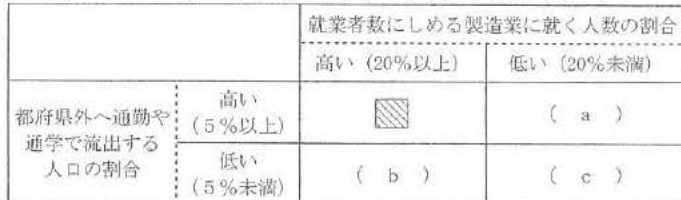 就業者数にしめる製造業に就く人数の割合
高い（20％以上）
低い（20％未満）
都府県外へ通勤や
通学で流出する
人口の割合
高い
（5％以上）
（ a ）
低い
（5％未満）
（ b ）
（ c ）